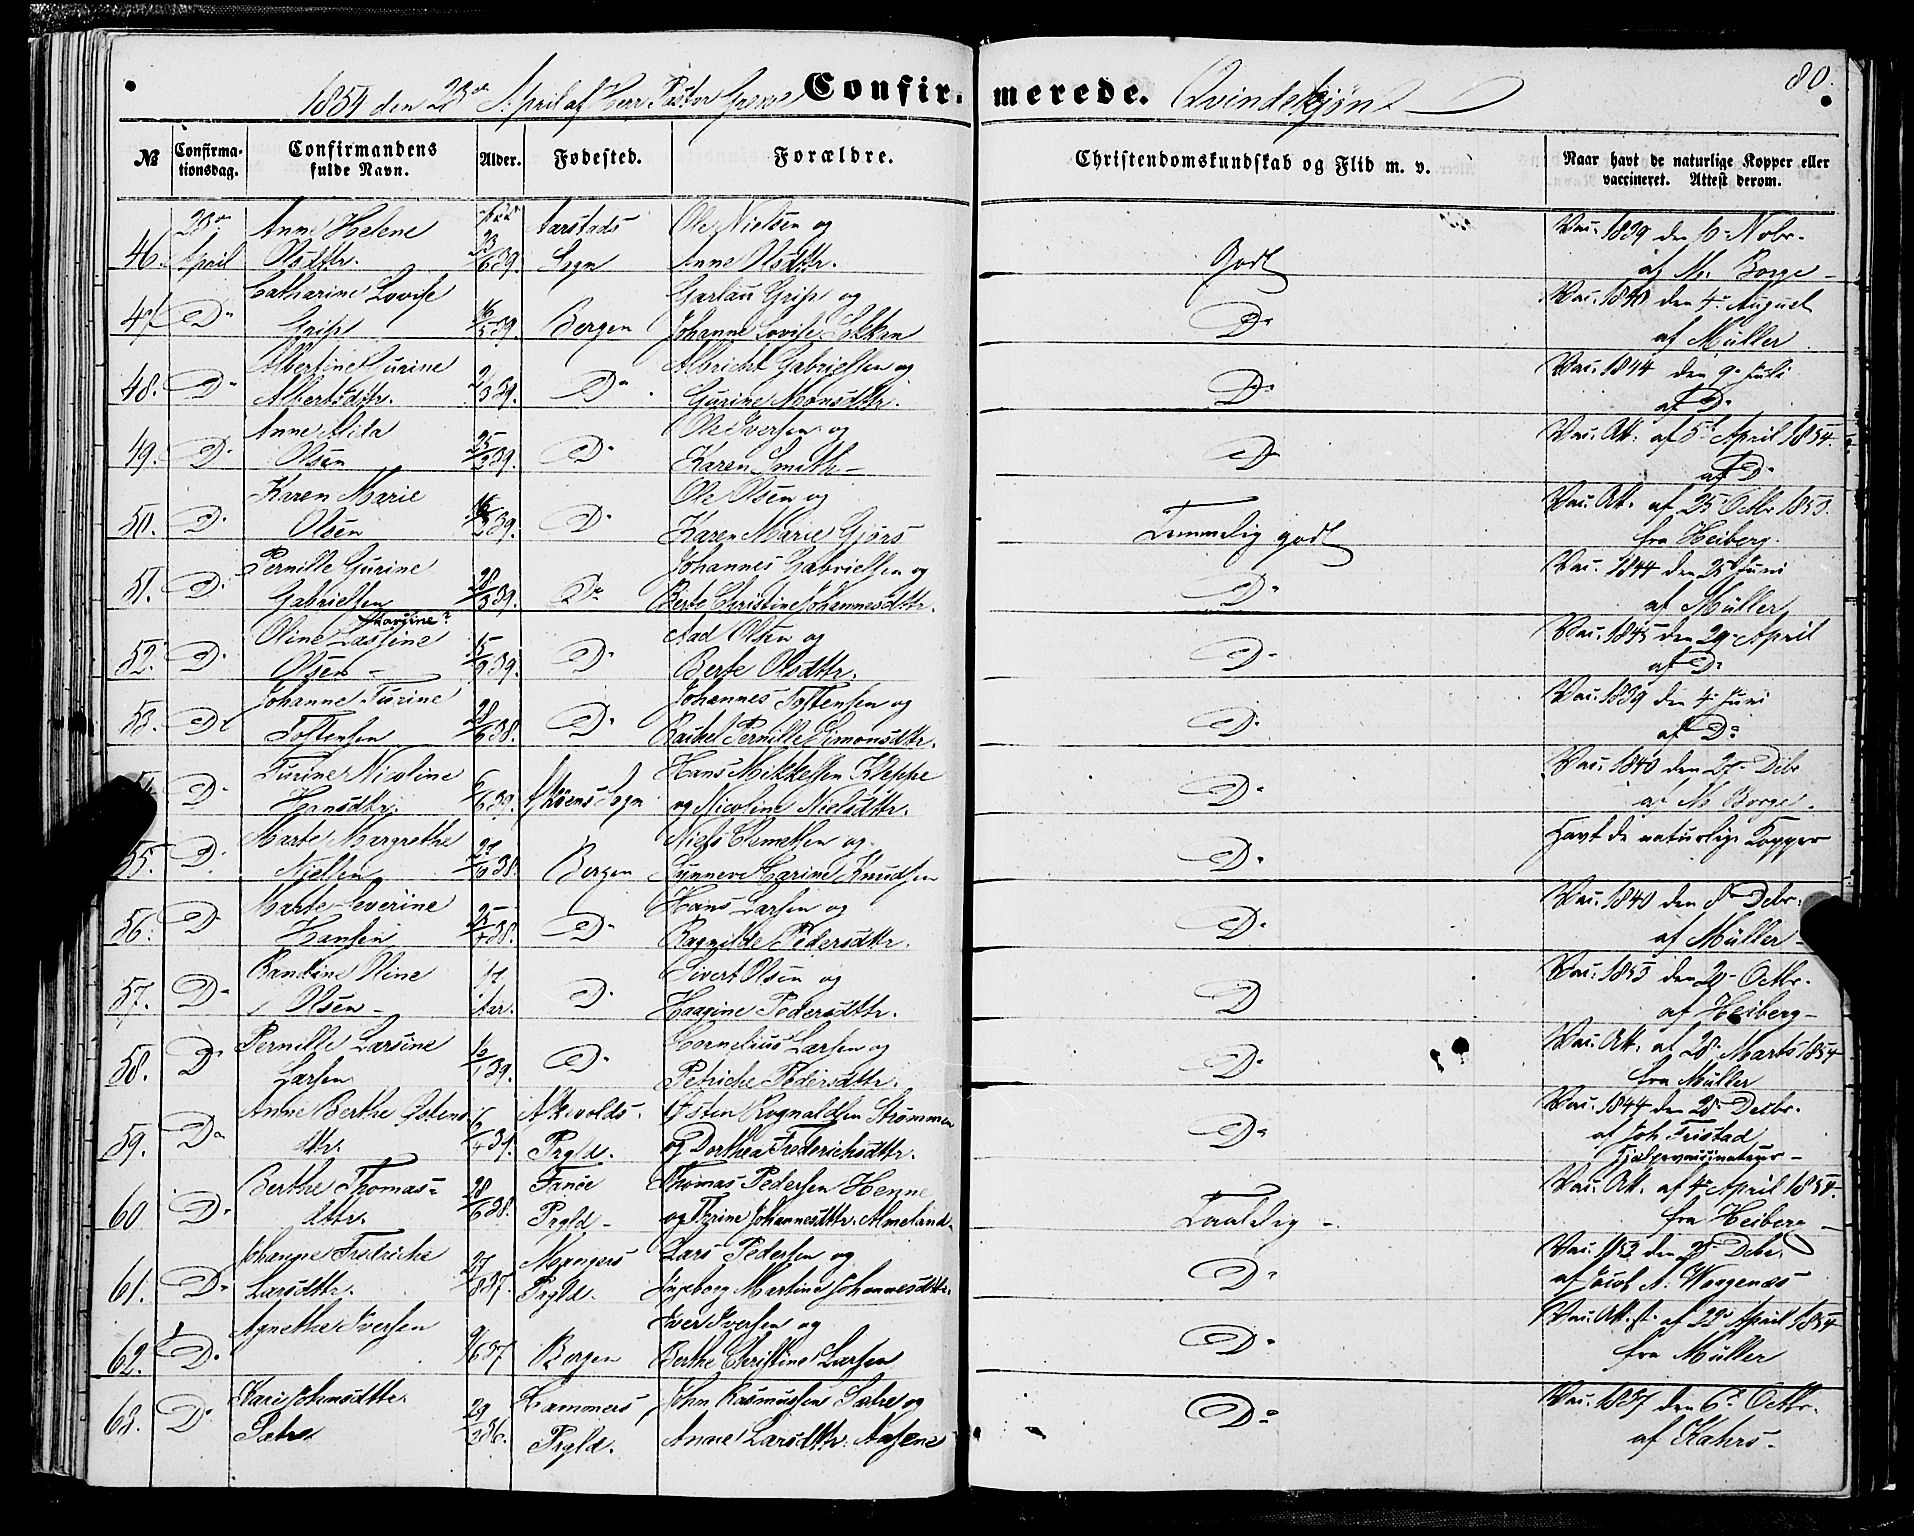 1854 den 23de April af Herr Pastor Confirmerede. Qvindekjøn 80.
№ Confirmationsdag. Confirmandens fulde Navn. Alder. Fødested. Forældre. Christendomskundskab og Flid m. v. Naar havt de naturlige Kopper eller vaccineret. Attest derom.
46. 23de April Anne Helene Olsdttr. 23/6 39. Aarstads Sogn Ole Nielsen og Anne Olsdttr. Godt Vac. 1839 den 10. Nobr. af M. Borge
47. Do Catharine Lovise Grip 16/5 39. Bergen Garlau Grip og Johanne Lovise Do Vac. 1840 den 4. August af Müller
48. Do Albertine Gurine Albertsdttr. 2/3 39. Do Albricht Gabrielsen og Gurine Monsdttr. Do Vac. 1844 den 9. Juli af Do
49. Do Anne Alita Olsen 25/3 39. Do Ole Iversen og Karen Smith Do Vac. Att. af 5. April 1854. af Do
50. Do Karen Marie Olsen 39. Do Ole Olsen og Karen Marie Gjørs Temmelig godt Vac. Att. af 25 Octbr 1853. fra Heiberg.
51. Do Pernille Gurine Gabrielsen 28/3 39. Do Johannes Gabrielsen og Berte Christine Johannesdttr. Do Vac. 1844 den 25 Juni af Müller
52. Do Oline Lassine Olsen 15/3 39. Do Aad Olsen og Berte Olsdttr. Do Vac. 1845 den 29. April af Do
53. Do Johanne Turine Tostensen 28/6 38. Do Johannes Tostensen og Rachel Pernille Simonsdttr. Do Vac. 1839 den 4. Juni af Do
Do Turine Nicoline Hansdttr. 6/6 39. Sogn Hans Mikkelsen Kleppe og Nicoline Nielsdttr. Do Vac. 1840 den 27. Dcbr af M. Borge.
55. Do Marte Margrethe Nielsen 38. Bergen Niels Clemetsen og Synneve Carine Knudsen Do Havt de naturlige Kopper
56. Do Marte Severine Hansen 25/7 38. Do Hans Larsen og Ragnilde Pedersdttr. Do Vac. 1840 den 8. Debr. af Müller
57. Do Oline Olsen 17 Aar. Do Sivert Olsen og Haagine Pedersdttr. Do Vac. 1853 den 29. Octbr. af Heiberg
58. Do Pernille Larsine Larsen 10/1 39. Do Cornelius Larsen og Petriche Pedersdttr. Do Vac. Att. af 28. Marts 1854 fra Müller
59. Do Anne Berthe Østensdttr. 6/4 39. Askevolds Prgld. Østen Rognaldsen Strømmen og Dorthea Frederichsdttr. Do Vac. 1844 den 28. Decbr. af Joh. Fristad Hjælpevaccinateur
60 Do Berthe Thomasdttr. 28/6 38. Fanøe Prgld Thomas Pedersen Henne og Thrine Johannesdttr. Almeland Taalelig Vac. Att. af 4. April 1854. fra Heiberg
61. Do Johanne Fredriche Larsdttr. 27/8 37. Mangers Prgld. Lars Pedersen og Ingeborg Martine Johannesdttr. Do Vac. 1852 den Debr. af Jacob A. Worgenæs
62. Do Agnethe Iversen 37 Bergen Iver Iversen og Berthe Christine Larsen Do Vac. Att. st. af 20. April 1854 fra Müller
63. Do Kari Johnsdttr. Sætre 36. Hammers Prgld. John Rasmussen Sætre og Anne Larsdttr. Aasene Do Vac. 1837 den 6. Octbr. af Kahrs.